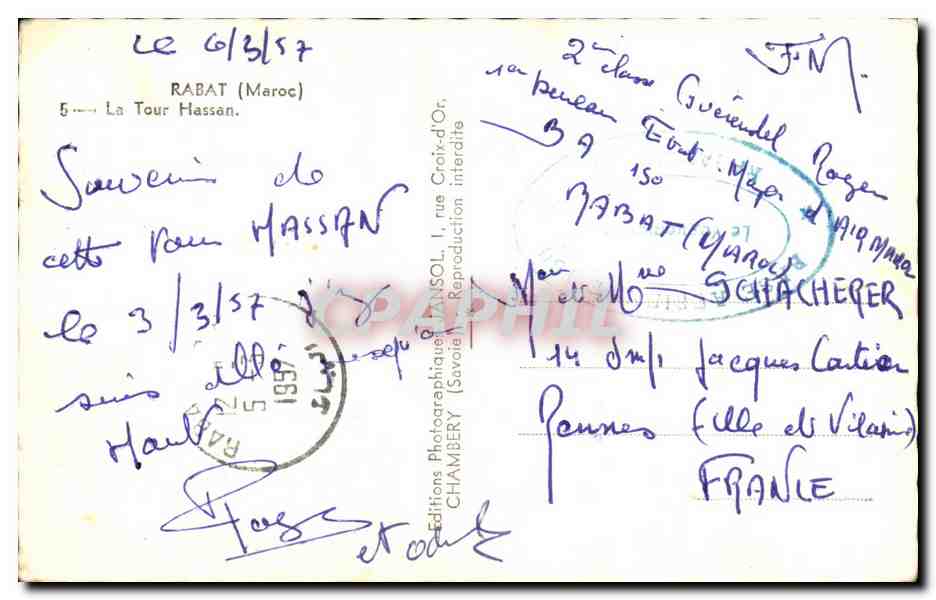 Le 6/3/57
RABAT (Maroc)
5 — La Tour Hassan.
Souvenir de
cette Tour HASSAN
le 3/3/57 j'y
suis allé jusqu'à
Haut
Roger
et
Editions Photographiques JANSOL, 1, rue Croix-d'Or,
CHAMBERY (Savoie) Reproduction interdite
F.M.
2eme classe Guérendel Roger
1er bureau Etat-Major d'AIR MAROC
BA 150
RABAT (MAROC)
Mr et Mme SCHACHERER
14 Jacques Cartier
Rennes (Ille et Vilaine)
FRANCE
CPAPHIL